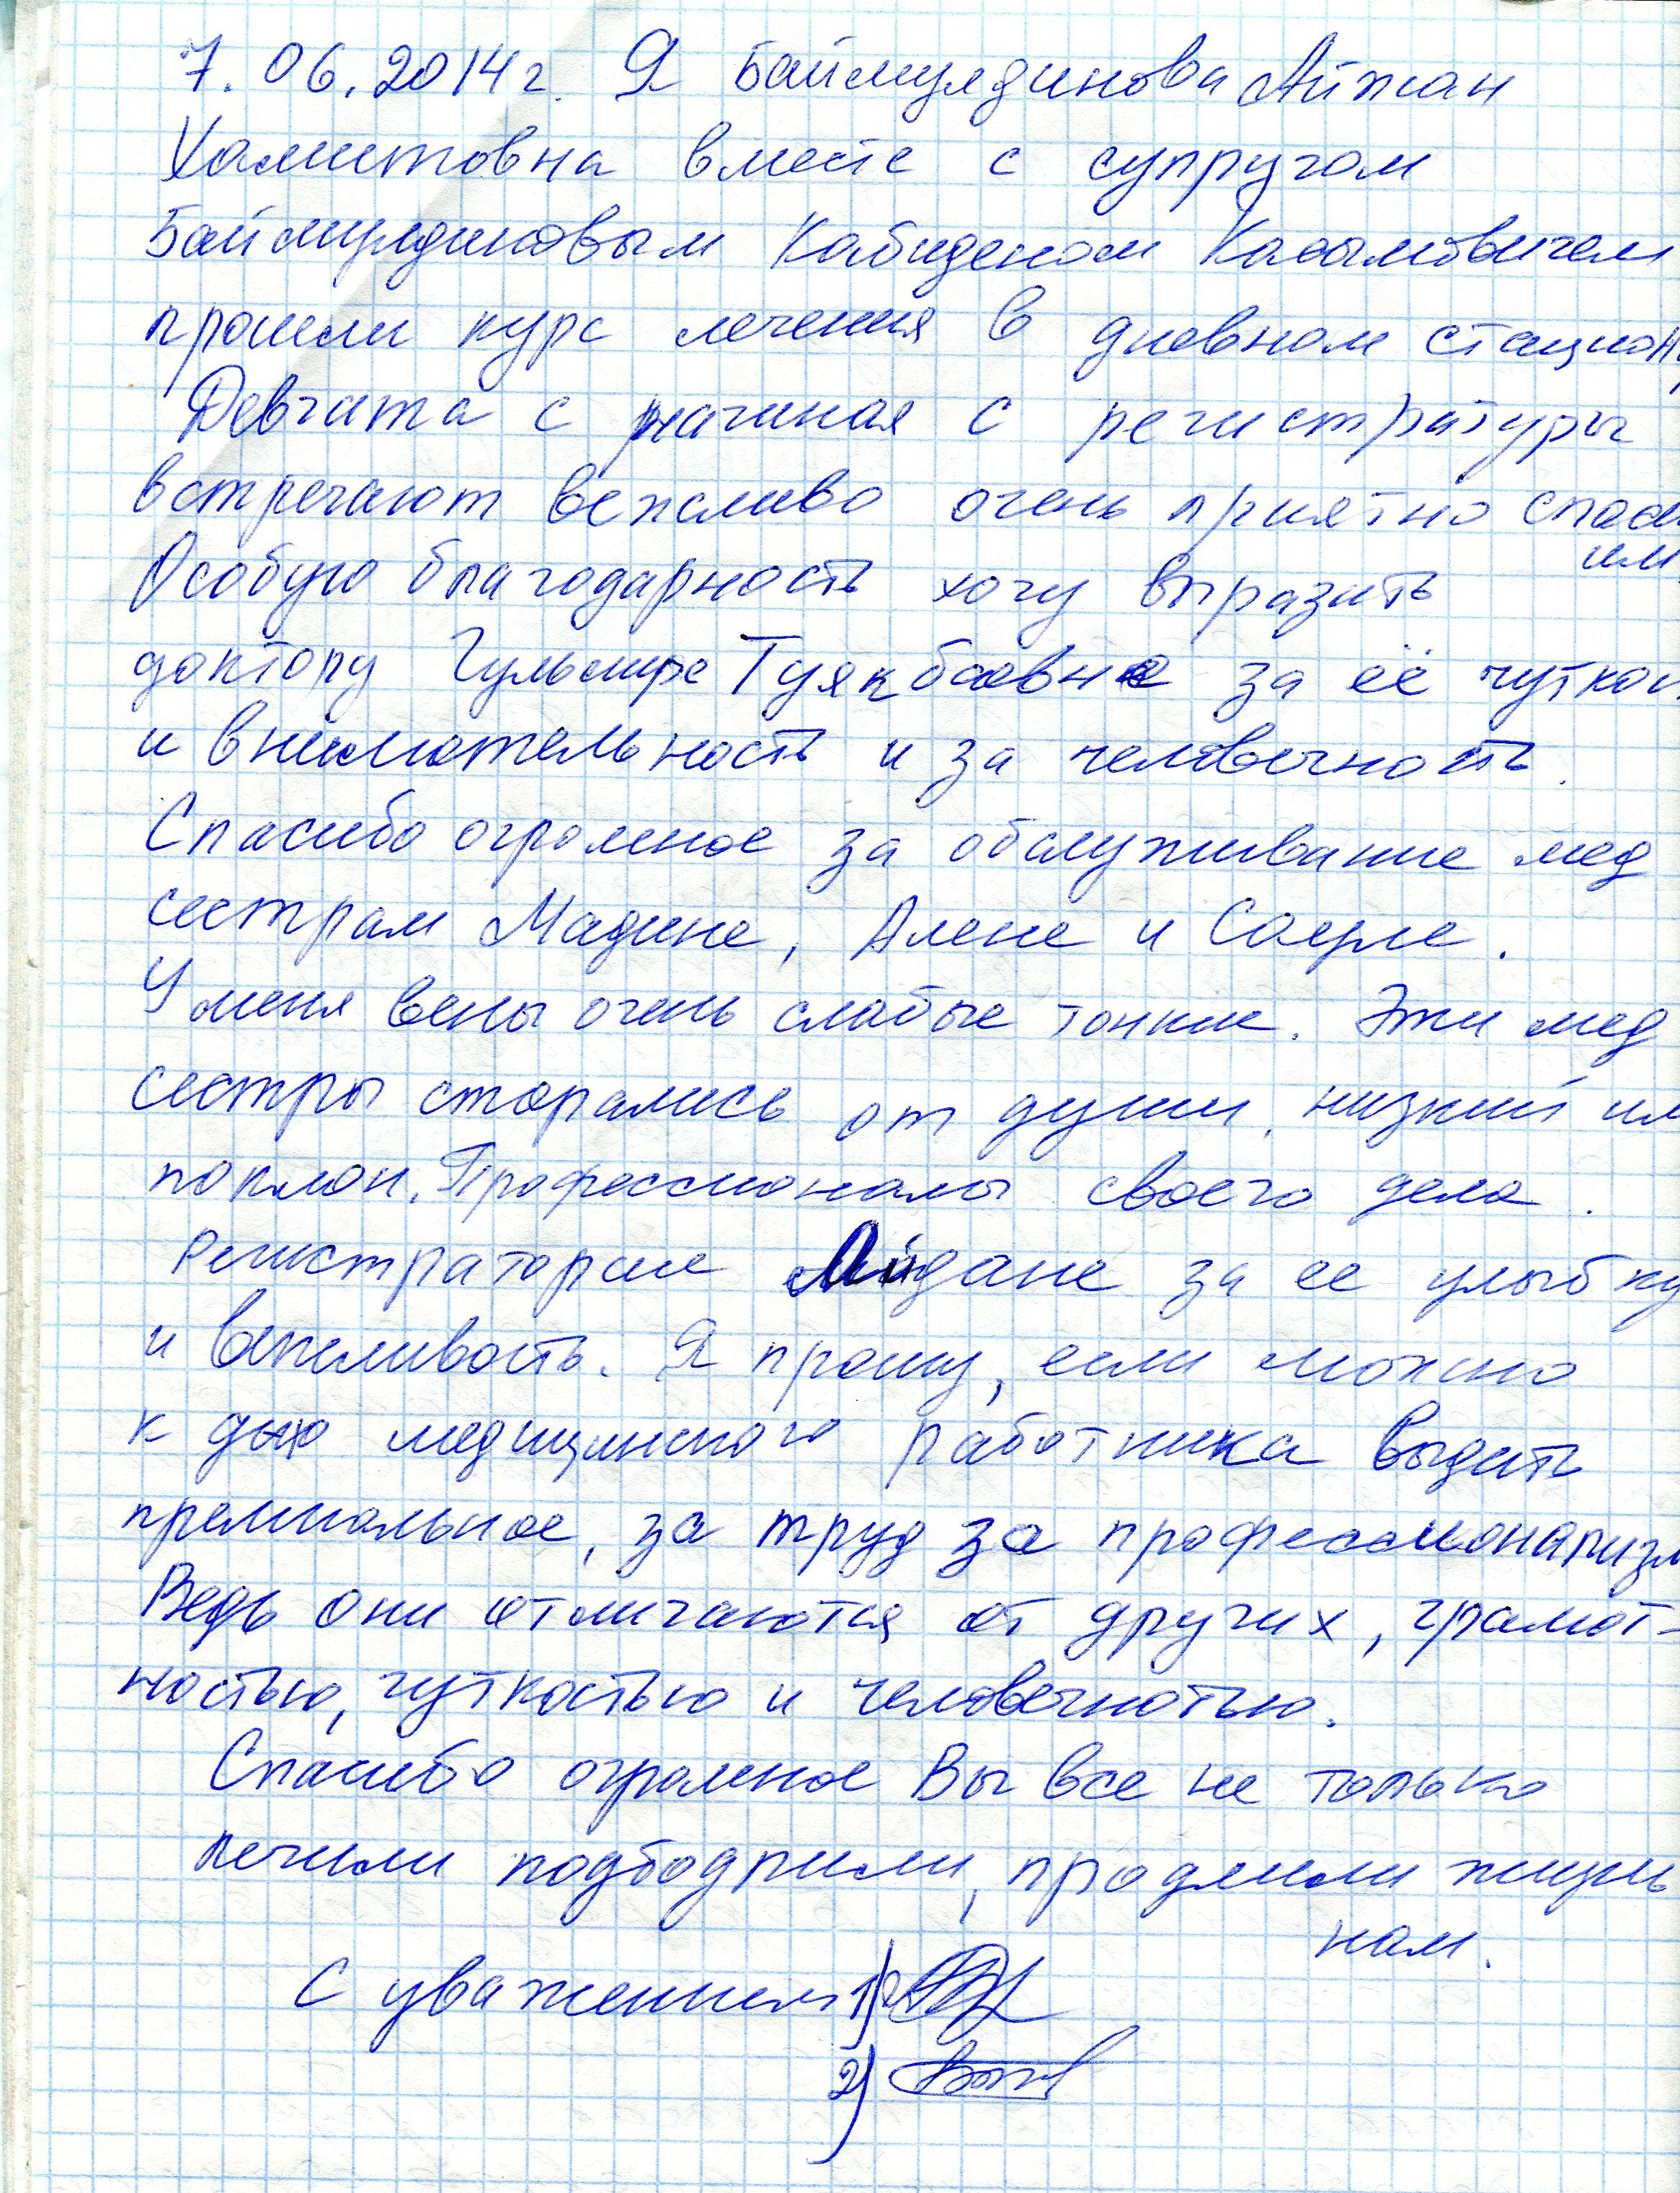 7. 06. 2014 г. Я Баймулдинова Айжан
Хамитовна вместе с супругом
Баймулдиновым Кабиденом Касымовичем
прошли курс лечения в дневном стацион
Девчата с начиная с регистратуры
встречают вежливо очень приятно спаси
им
Особую благодарность хочу выразить
доктору Гульмире Туякбаевне за её чутко
и внимательность и за человечность.
Спасибо огромное за обслуживание мед
сестрам Мадине, Алене и Сауле.
У меня вены очень слабые тонкие. Эти мед
сестры старались от души, низкий им
поклон. Профессионалы своего дела.
Регистраторше Айдане за ее улыбку
и вежливость. Я прошу, если можно
к дню медицинского работника выдать
премиальное, за труд за профессионализм
Ведь они отличаются от других, грамот-
ностью, чуткостью и человечностью.
Спасибо огромное Вы все не только
лечили подбодрили, продлили жизнь
нам.
С уважением 1)
2)